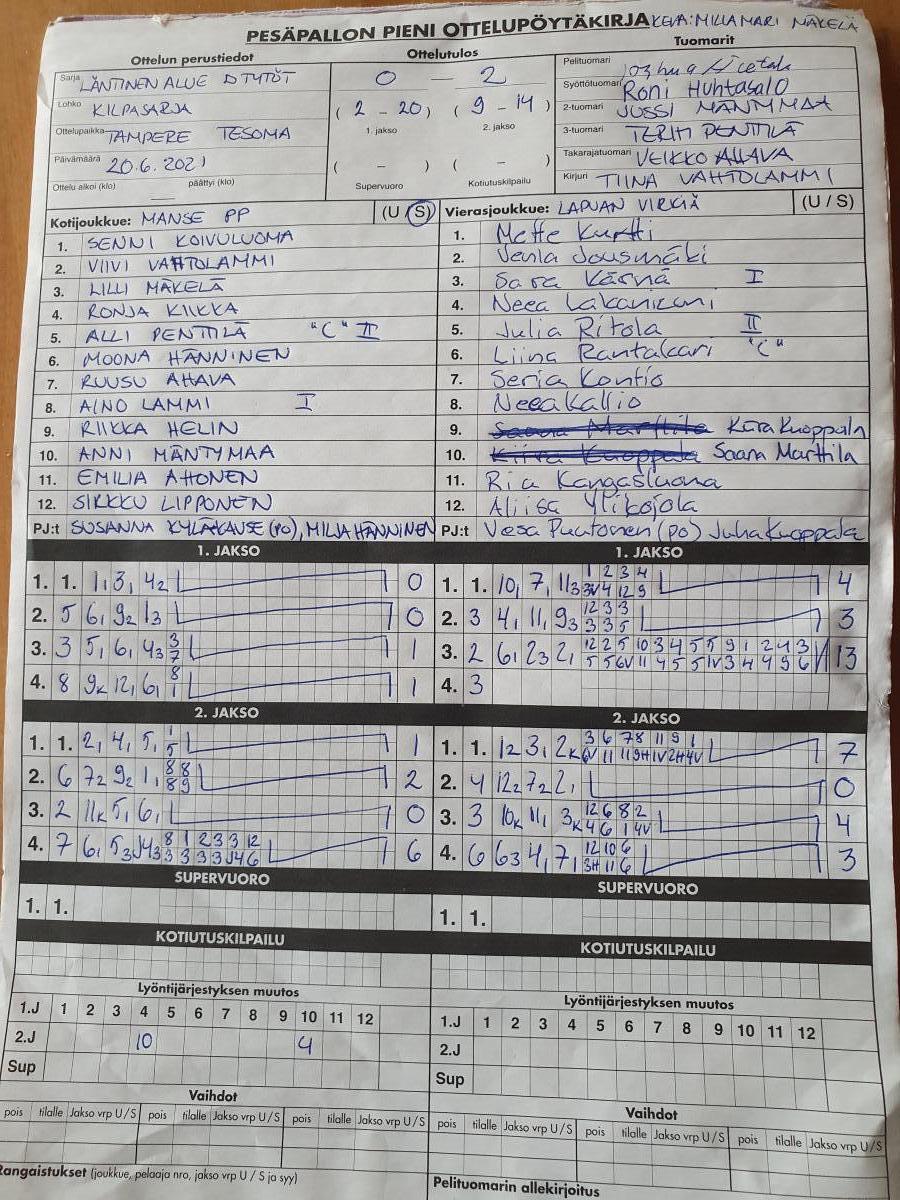 PESÄPALLON PIENI OTTELUPÖYTÄKIRJA KEVA: MILLAMARI MÄKELÄ
Ottelun perustiedot Ottelutulos Tuomarit
Sarja LÄNTINEN ALUE D TYTÖT
Lohko KILPASARJA
Ottelupaikka TAMPERE TESOMA
Päivämäärä 20.6.2021
Ottelu alkoi (klo) päättyi (klo)
0 — 2
(2 - 20) (9 - 14)
1. jakso 2. jakso
( - ) ( - )
Supervuoro Kotiutuskilpailu
Pelituomari
Syöttötuomari RONI HUHTASALO
2-tuomari JUSSI MÄNTYMAA
3-tuomari TERHI PENTTILÄ
Takarajatuomari VEIKKO AHAVA
Kirjuri TIINA VAHTOLAMMI
Kotijoukkue: MANSE PP (U / S)
1. SENNI KOIVULUOMA
2. VIIVI VAHTOLAMMI
3. LILLI MÄKELÄ
4. RONJA KIIKKA
5. ALLI PENTTILÄ "C" II
6. MOONA HÄNNINEN
7. RUUSU AHAVA
8. AINO LAMMI I
9. RIIKKA HELIN
10. ANNI MÄNTYMAA
11. EMILIA AHONEN
12. SIKKU LIPPONEN
PJ:t SUSANNA (PO), MILJA HÄNNINEN
Vierasjoukkue: LAPUAN VIRKIÄ (U / S)
1. Mette Kurtti
2. Venla Jousmäki
3. Sara Kärnä I
4. Neea Lakaniemi
5. Julia Ritola II
6. Liina Rantakari "C"
7. Seria Kontio
8. Neea Kallio
9. Saana Marttila Kiira Kuoppala
10. Kiira Kuoppala Saana Marttila
11. Ria Kangasluoma
12. Aliisa Ylikojola
PJ:t Vesa Puutonen (po) Juha Kuoppala
1. JAKSO
1. 1. 1, 3, 42 0
2. 5 6, 92 13 0
3. 3 5, 6, 43 3 1
7
4. 8 9K 12, 6, 8 1
1
2. JAKSO
1. 1. 2, 4, 5, 1 1
5
2. 6 72 92 1, 8 8 2
8 9
3. 2 11K 5, 6, 0
4. 7 6, 53 J43 8 1 2 3 3 12 6
3 3 3 3 J4 6
SUPERVUORO
1. 1.
KOTIUTUSKILPAILU
1. JAKSO
1. 1. 10, 7, 113 1 2 3 4 4
3V 4 12 9
2. 3 4, 11, 93 12 3 3 3
3 3 5
3. 2 6, 23 2, 12 2 5 10 3 4 5 5 9 1 2 4 3 13
5 5 6V 11 4 5 5 1V 3 4 4 9 6
4. 3
2. JAKSO
1. 1. 12 3, 2K 3 6 7 8 11 9 1 7
6V 11 11 9H 1V 2H 4V
2. 4 122 72 2, 0
3. 3 10K 11, 3K 12 6 8 2 4
4 6 1 4V
4. 6 63 4, 7, 12 10 6 3
3H 11 6
SUPERVUORO
1. 1.
KOTIUTUSKILPAILU
Lyöntijärjestyksen muutos
1.J 1 2 3 4 5 6 7 8 9 10 11 12
2.J 10 4
Sup
Vaihdot
pois tilalle Jakso vrp U / S pois tilalle Jakso vrp U / S pois tilalle Jakso vrp U / S
Rangaistukset (joukkue, pelaaja nro, jakso vrp U / S ja syy)
Lyöntijärjestyksen muutos
1.J 1 2 3 4 5 6 7 8 9 10 11 12
2.J
Sup
Vaihdot
pois tilalle Jakso vrp U / S pois tilalle Jakso vrp U / S pois tilalle Jakso vrp U / S
Pelituomarin allekirjoitus